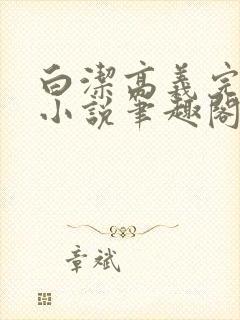 白潔高義完
小説筆趣閣
章斌